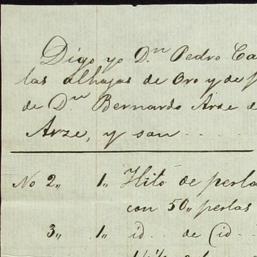 Digo yo Dn. Pedro Ca
las alhajas de Oro y de p
de Dn. Bernardo Arze d
Arze, y son....
No 2,, 1,, Hilo de perla
con 50,, perlas
3,, 1,, id.. de Cid..